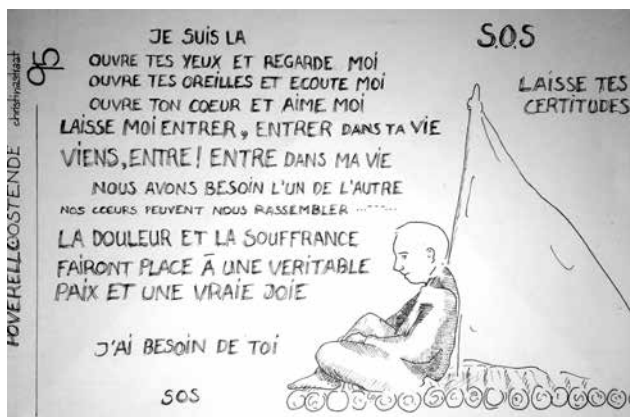 POVERELLO OOSTENDE christinastaat 95
JE SUIS LA
OUVRE TES YEUX ET REGARDE MOI
OUVRE TES OREILLES ET ECOUTE MOI
OUVRE TON COEUR ET AIME MOI
LAISSE MOI ENTRER, ENTRER DANS TA VIE
VIENS, ENTRE! ENTRE DANS MA VIE
NOUS AVONS BESOIN L'UN DE L'AUTRE
NOS COEURS PEUVENT NOUS RASSEMBLER .......
LA DOULEUR ET LA SOUFFRANCE
FAIRONT PLACE Ā UNE VERITABLE
PAIX ET UNE VRAIE JOIE
J'AI BESOIN DE TOI
SOS
S.O.S
LAISSE TES
CERTITUDES